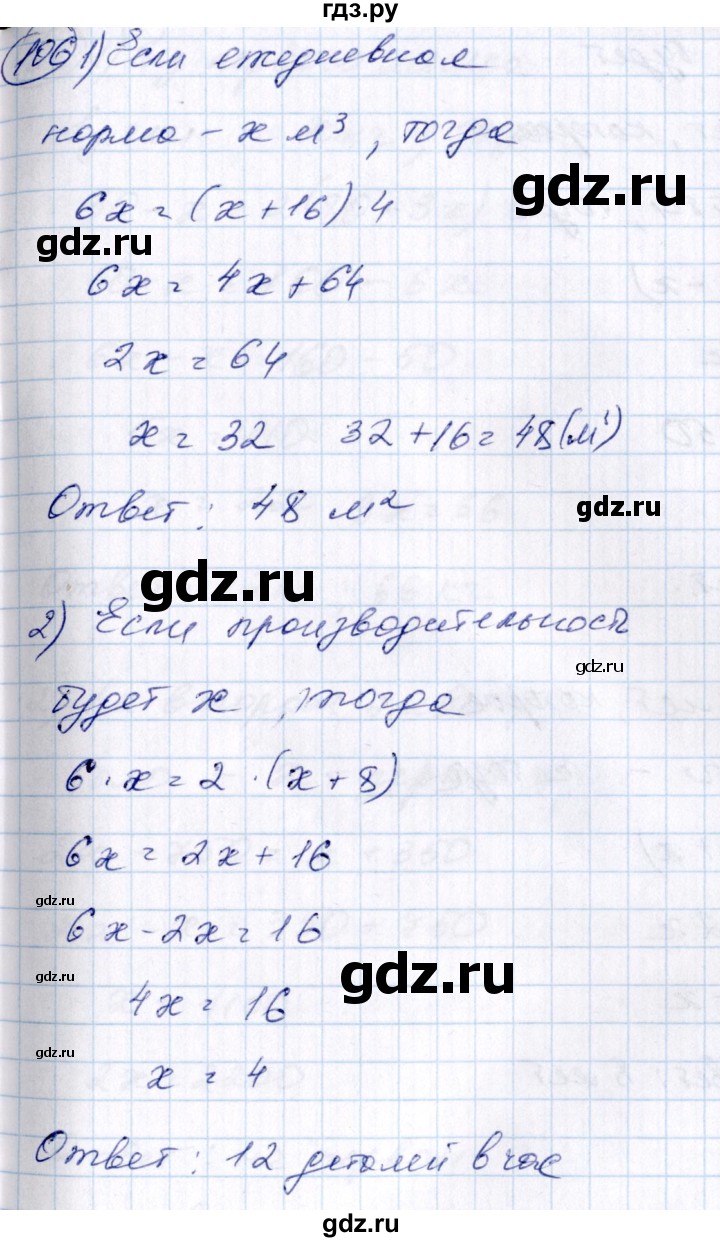 гдз.ру
106 1) Если ежедневная
норма - х м³, тогда
gdz.ru
6x = (x+16)·4
gdz.ru
6x = 4x+64
2x = 64
x = 32 32+16=48(м¹)
gdz.ru
Ответ: 48 м²
gdz.ru
2) Если производительность
gdz.ru
будет х, тогда
6·x=2·(x+8)
6x = 2x+16
gdz.ru
6x-2x=16
gdz.ru
gdz.ru
4x = 16
gdz.ru
x = 4
Ответ: 12 деталей в час
gdz.ru